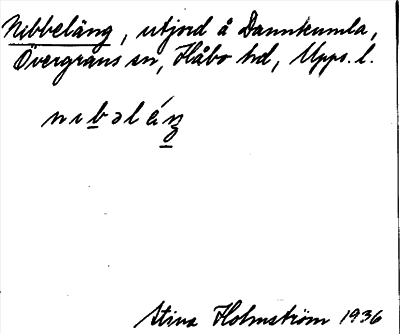 Nibbeläng, utjord å Dannkumla,
Övergrans sn, Håbo hd, Upps. l.
nıbəlé̱ŋ
Stina Holmström 1936